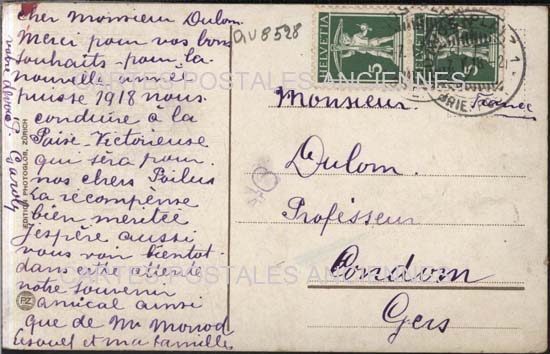 Cher Monsieur Dulom.
Merci pour vos bons
souhaits - pour la
nouvelle année
puisse 1918 nous
conduire à la
Paise Victorieuse
qui sera pour
nos chers Poilus
la récompense
bien méritée
J'espère aussi
vous voir bientot-
dans cette attente
notre souvenir
amical ainsi
que de Mr Monod
et ma famille
votre
EDITION PHOTOGLOB, ZÜRICH
PZ
AU 8528
HELVETIA
5
HELVETIA
5
Monsieur
France
Dulom.
Profésseur
Condom
Gers
CARTES POSTALES ANCIENNES
CARTES POSTALES ANCIENNES